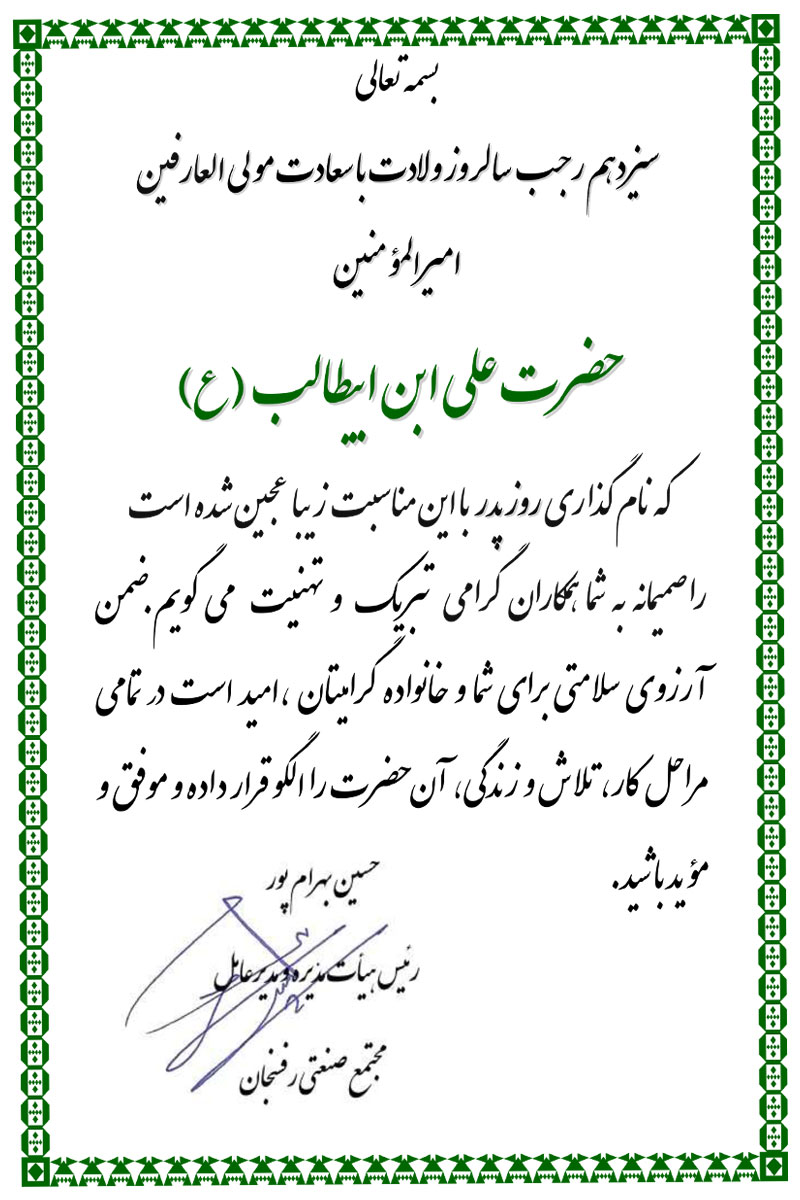 بسمه تعالی
سیزدهم رجب سالروز ولادت باسعادت مولی العارفین
امیرالمؤمنین
حضرت علی ابن ابیطالب (ع)
که نام گذاری روز پدر با این مناسبت زیبا عجین شده است
را صمیمانه به شما همکاران گرامی تبریک و تهنیت می گویم. ضمن
آرزوی سلامتی برای شما و خانواده گرامیتان ، امید است در تمامی
مراحل کار، تلاش و زندگی، آن حضرت را الگو قرار داده و موفق و
مؤید باشید.
حسین بهرام پور
رئیس هیأت مدیره و مدیرعامل
مجتمع صنعتی رفسنجان